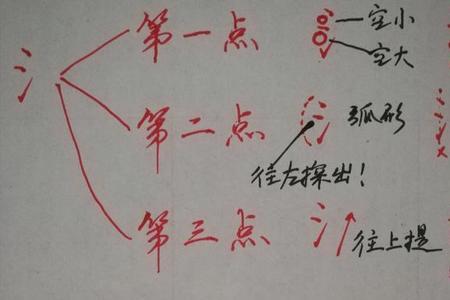 氵
第一点
空小
空大
第二点
弧形
往左探出！
第三点
氵
往上提